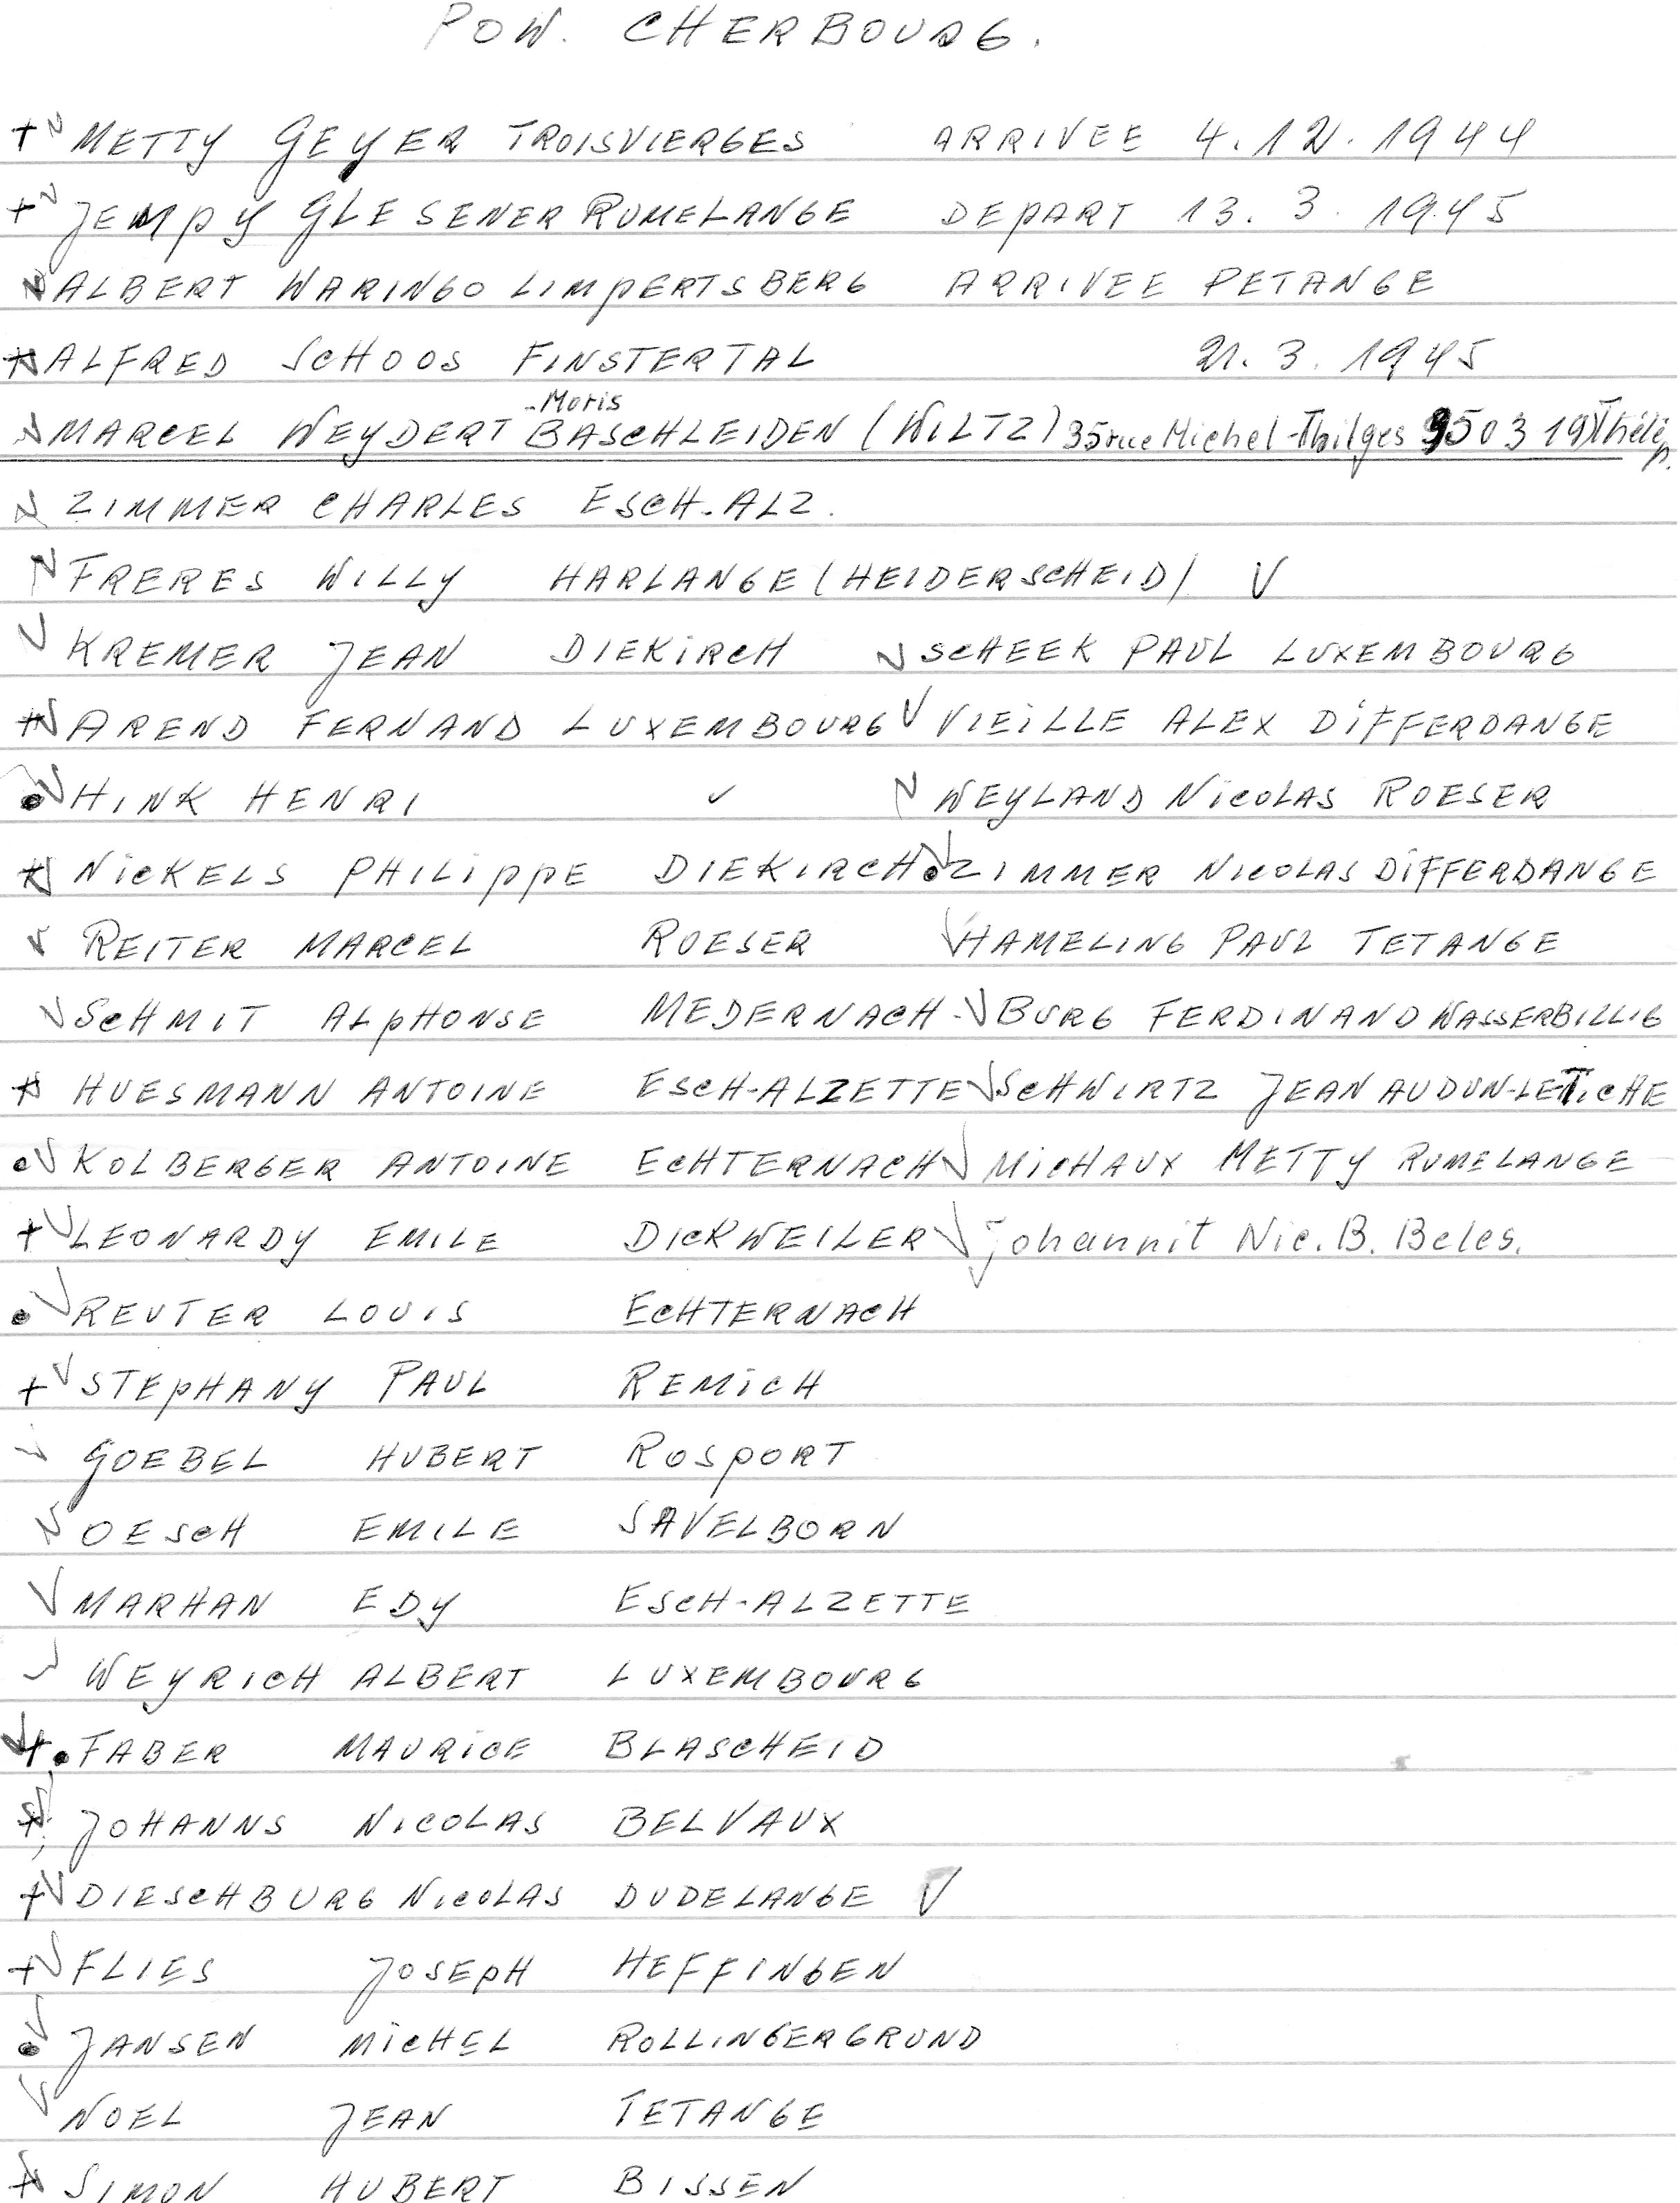 POW. CHERBOURG.
+ METTY GEYER TROISVIERGES ARRIVEE 4.12.1944
+ JEMPY GLESENER RUMELANGE DEPART 13.3.1945
ALBERT WARINGO LIMPERTSBERG ARRIVEE PETANGE
+ ALFRED SCHOOS FINSTERTAL 21.3.1945
-Moris
MARCEL WEYDERT BASCHLEIDEN (WILTZ) 35 rue Michel-Thilges 950319 Théle
p.
ZIMMER CHARLES ESCH-ALZ.
FRERES WILLY HARLANGE (HEIDERSCHEID) V
V KREMER JEAN DIEKIRCH V SCHEEK PAUL LUXEMBOURG
+V AREND FERNAND LUXEMBOURG V VIEILLE ALEX DIFFERDANGE
•V HINK HENRI ✓ V WEYLAND NICOLAS ROESER
+V NICKELS PHILIPPE DIEKIRCH •V ZIMMER NICOLAS DIFFERDANGE
V REITER MARCEL ROESER V HAMELING PAUL TETANGE
V SCHMIT ALPHONSE MEDERNACH - V BURG FERDINAND WASSERBILLIG
+ HUESMANN ANTOINE ESCH-ALZETTE V SCHWIRTZ JEAN AUDUN-LE-TICHE
•V KOLBERGER ANTOINE ECHTERNACH V MICHAUX METTY RUMELANGE
+V LEONARDY EMILE DICKWEILER V Johannit Nic. B. Beles.
•V REUTER LOUIS ECHTERNACH
+V STEPHANY PAUL REMICH
V GOEBEL HUBERT ROSPORT
V OESCH EMILE SAVELBORN
V MARHAN EDY ESCH-ALZETTE
V WEYRICH ALBERT LUXEMBOURG
V+• FABER MAURICE BLASCHEID
+V JOHANNS NICOLAS BELVAUX
+V DIESCHBURG NICOLAS DUDELANGE V
+V FLIES JOSEPH HEFFINGEN
•V JANSEN MICHEL ROLLINGERGRUND
V NOEL JEAN TETANGE
+V SIMON HUBERT BISSEN